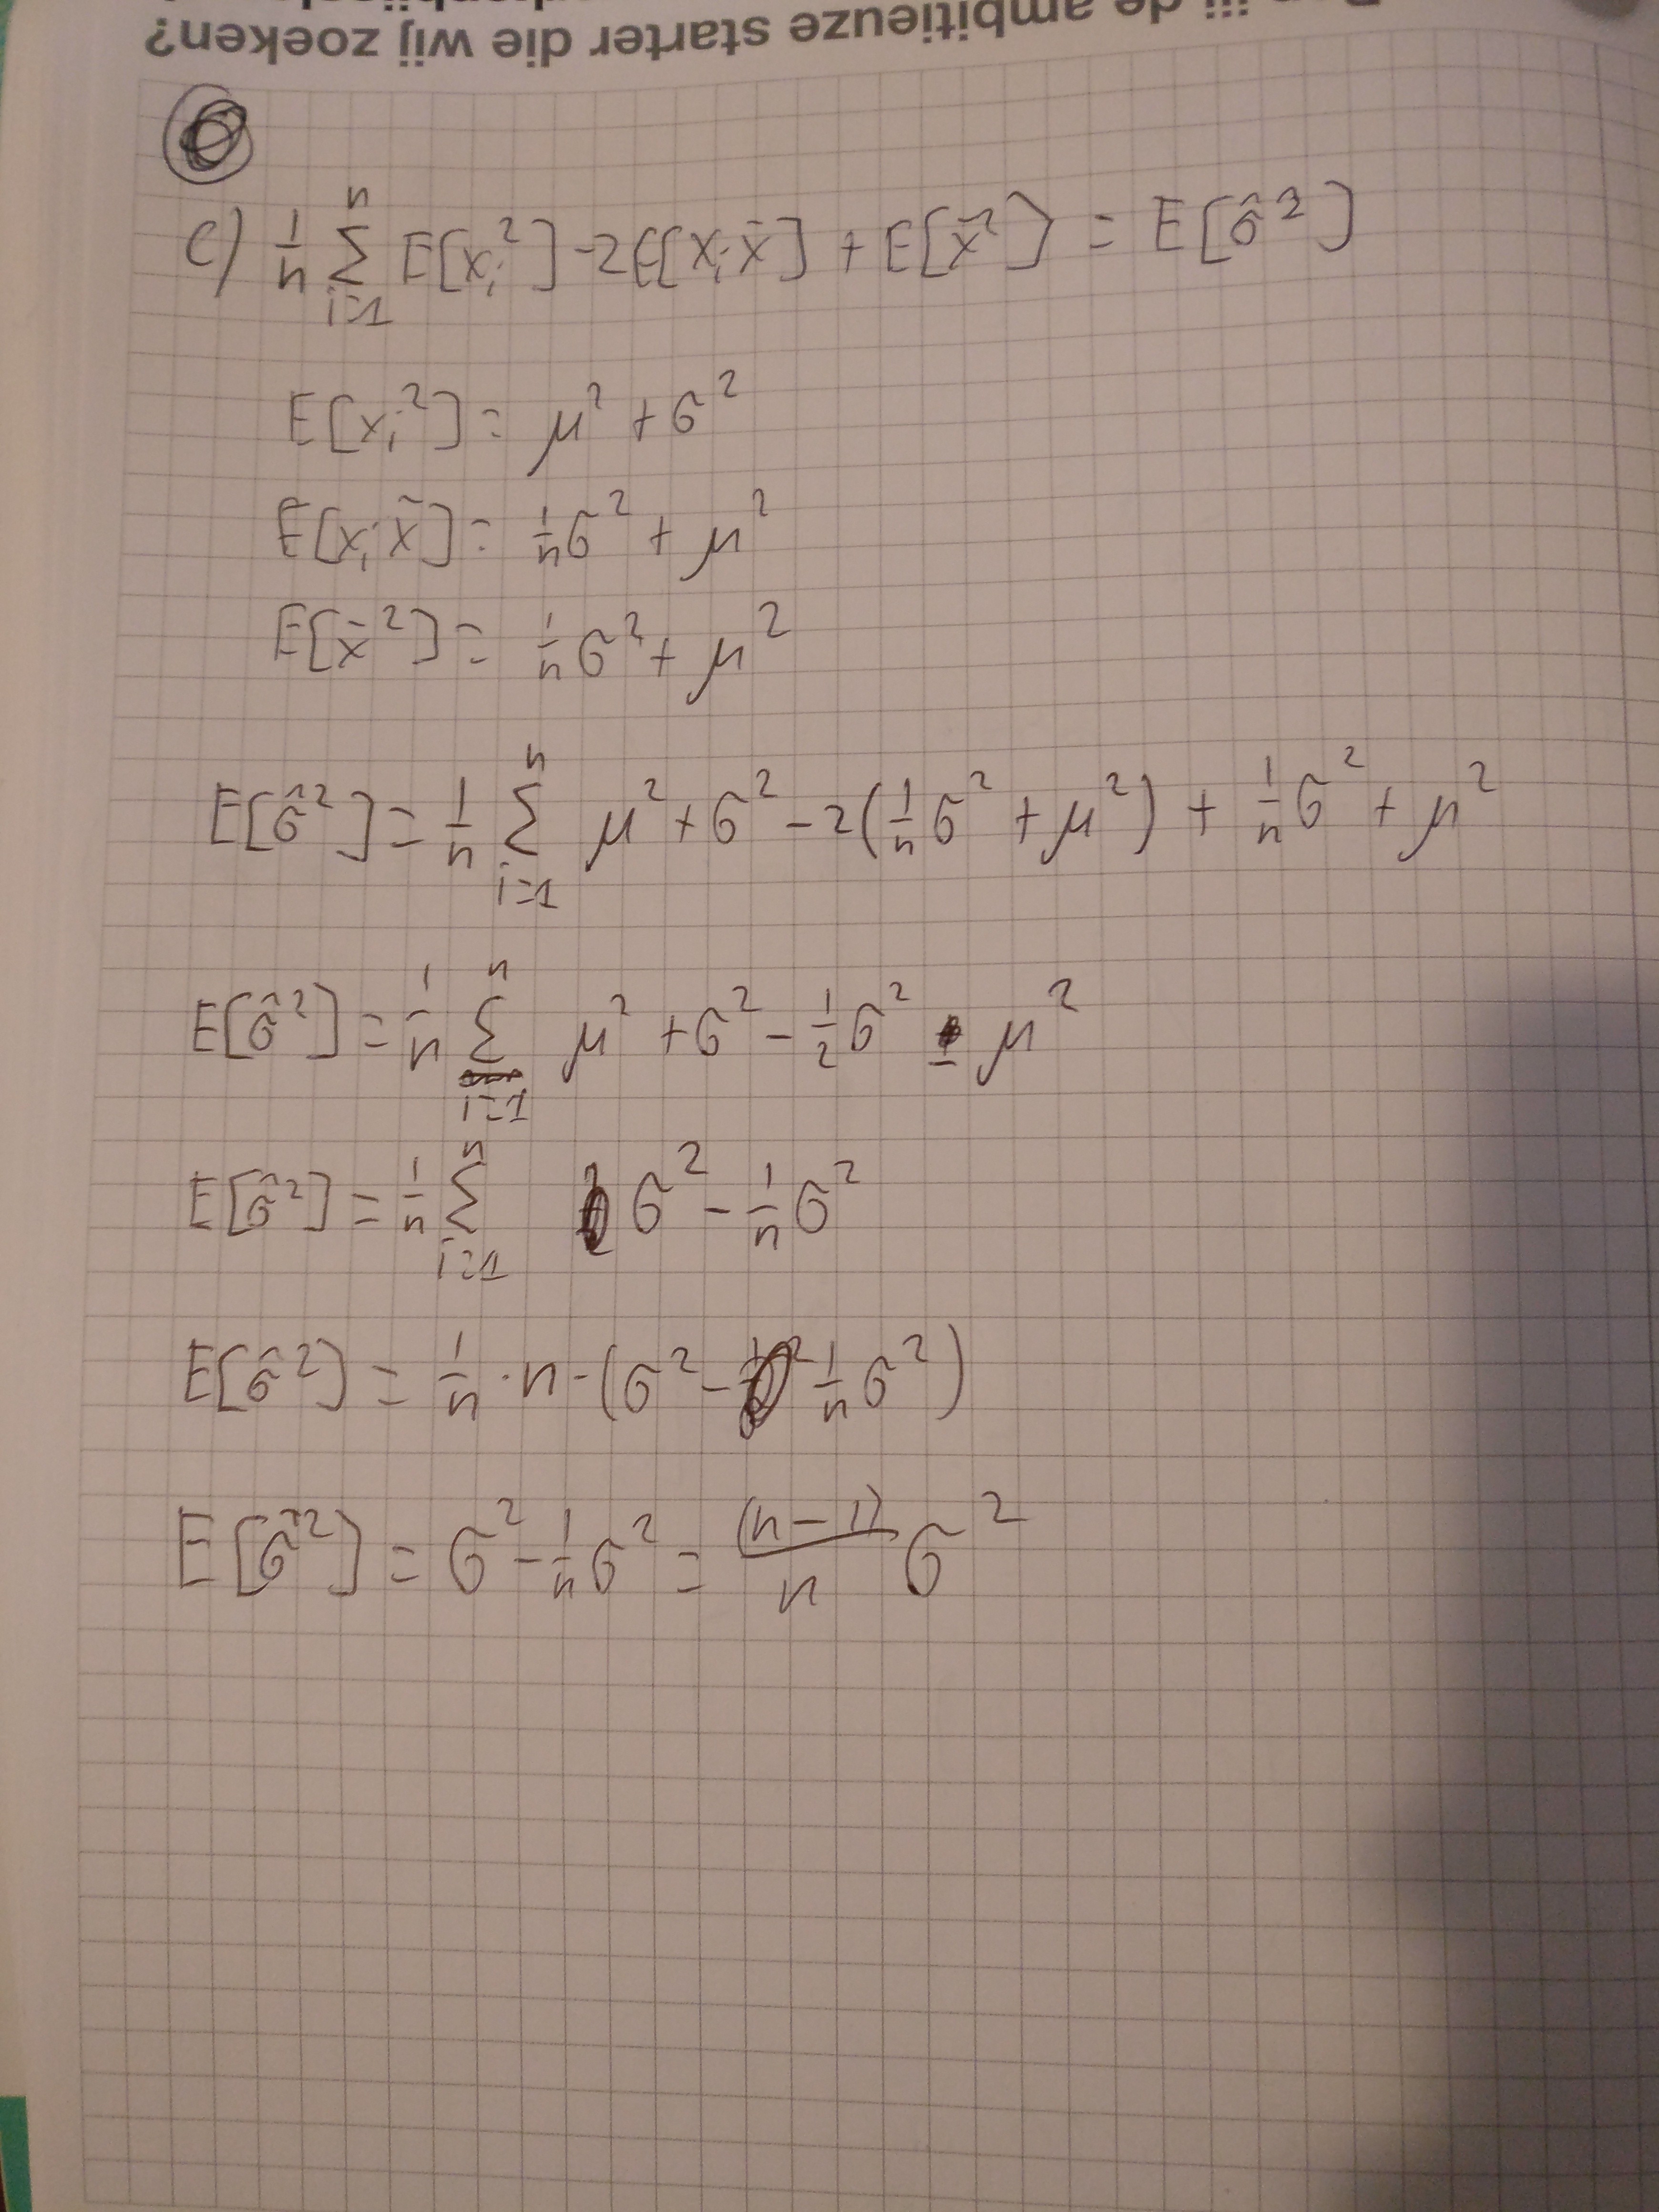 de ambitieuze starter die wij zoeken?
c) 1/n Σ_{i=1}^{n} E[x_i²] - 2E[x_i x̄] + E[x̄²] = E[σ̂²]
E[x_i²] = μ² + σ²
E[x_i x̄] = 1/n σ² + μ²
E[x̄²] = 1/n σ² + μ²
E[σ̂²] = 1/n Σ_{i=1}^{n} μ² + σ² - 2(1/n σ² + μ²) + 1/n σ² + μ²
E[σ̂²] = 1/n Σ_{i=1}^{n} μ² + σ² - 1/2 σ² - μ²
E[σ̂²] = 1/n Σ_{i=1}^{n} σ² - 1/n σ²
E[σ̂²] = 1/n · n · (σ² - 1/n σ²)
E[σ̂²] = σ² - 1/n σ² = (n-1)/n σ²